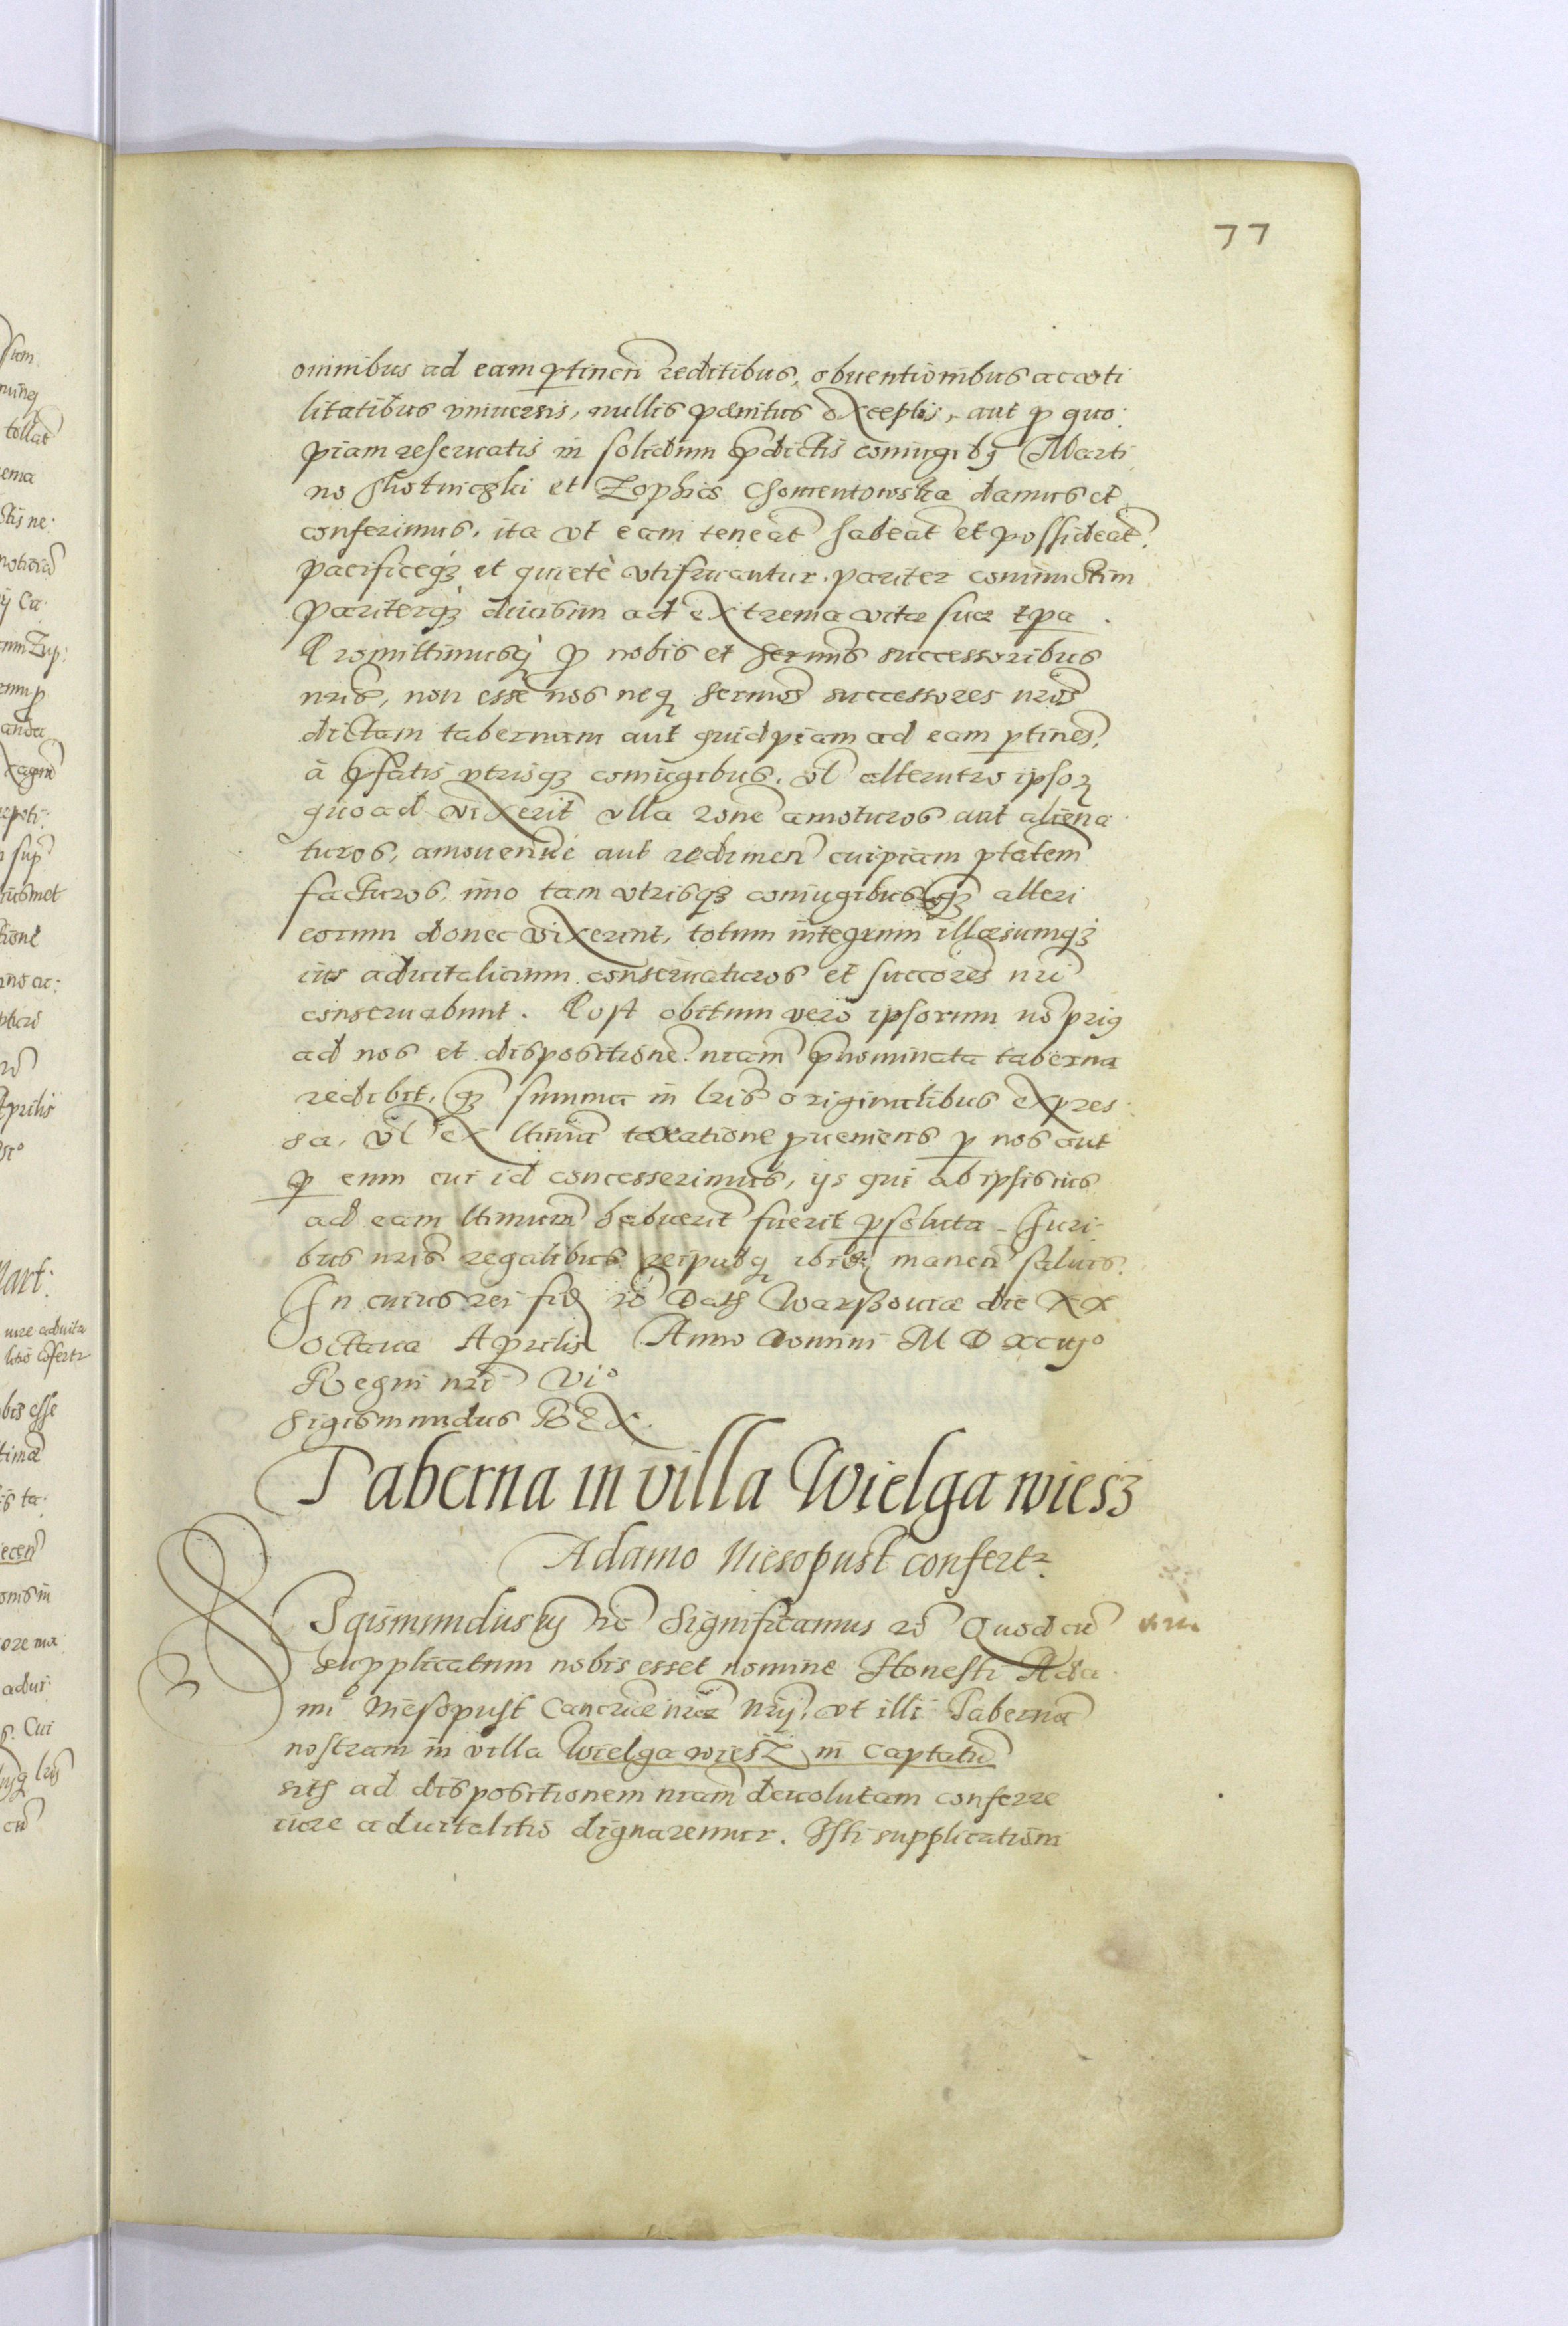 77
omnibus ad eam ptinen̄ reditibus, obuentionibus ac vti
litatibus vniuersis, nullis pœnitus exceptis, aut p quo:
piam reseruatis in solidum p̄dictis coniugibꝫ Marti
no et Zophiæ Chomentowska damus et
conferimus, ita vt eam teneāt habeāt et possideāt,
pacificeqꝫ et quietè vtifruantur, pariter coniunctim
pariterqꝫ diuisim ad extrema vitæ suæ tp̱a.
Promittimusqꝫ p nobis et sermis successoribus
nr̄is, non esse nos neqꝫ sermos successores nr̄os
dictam tabernam aut quidpiam ad eam ptinen̄s,
à p̄fatis vtrisqꝫ coniugibus, vl̄ alterutro ipsoꝝ
quoad vixerit vlla rōne amoturos aut aliena
turos, amouen̄ue aut redimen̄ cuipiam ptātem
facturos, imo tam vtrisqꝫ coniugibus qꝫ alteri
eorum donec vixerint, totum integrum illæsumqꝫ
ius aduitalicium conseruaturos et succōres nr̄i
conseruabunt. Post obitum vero ipsorum nō prius
ad nos et dispositionē nr̄am p̄nominata taberna
redibit, qꝫ summa in lr̄is originalibus expres:
sa, vl̄ ex ltimā taxatione pueniens p nos aut
p eum cui id concesserimus, ijs qui ab ipsis ius
ad eam ltimum habuerit fuerit psoluta. Juri-
bus nr̄is regalibus reipubqꝫ ibidꝫ manen̄ saluis.
In cuius rei fid̄ rō Datꝫ Warssouiæ die XX
octaua Aprilis Anno Domini M D xciijº
Regni nr̄i viº
Sigismundus REX.
Taberna in villa Wielga wiesz
Adamo Miesopust confertꝛ.
Sigismundus iij rō Significamus rō Quod cū
supplicatum nobis esset nomine Honesti Ada
mi Miesopust nr̄æ vt illi Tabernā
nostram in villa Wielga wiesz in Captatū
sitꝫ ad dispositionem nr̄am deuolutam conferre
iure aduitalitio dignaremur. Isti supplicationi